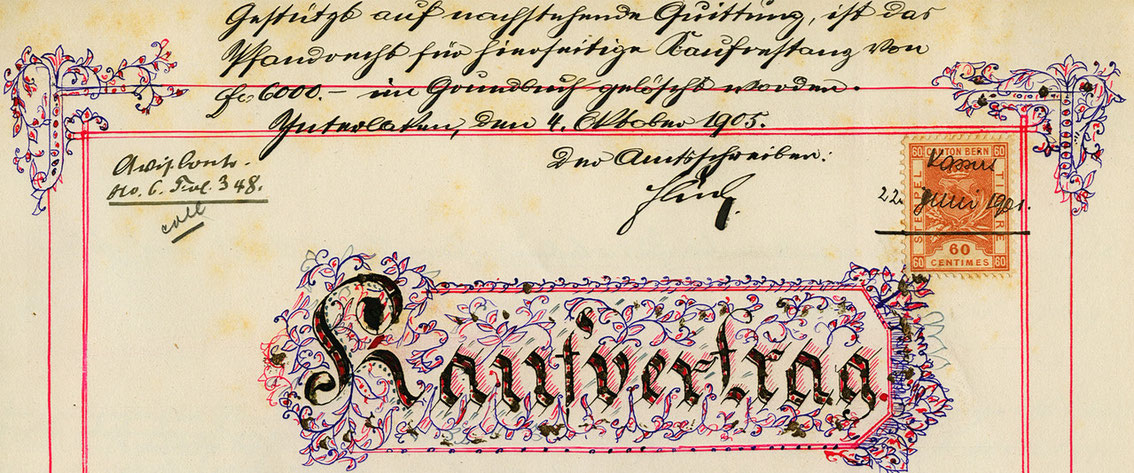 Gestützt auf nachstehende Quittung, ist das
Pfandrecht für hierseitige Kaufrestanz von
Fr. 6000.– im Grundbuch gelöscht worden.
Interlaken, den 4. Oktober 1905.
Der Amtsschreiber:
No. 6. Fol. 348.
coll
60 CANTON BERN 60
STEMPEL
TIMBRE
22. Juni 1901.
60
60 CENTIMES 60
Kaufvertrag